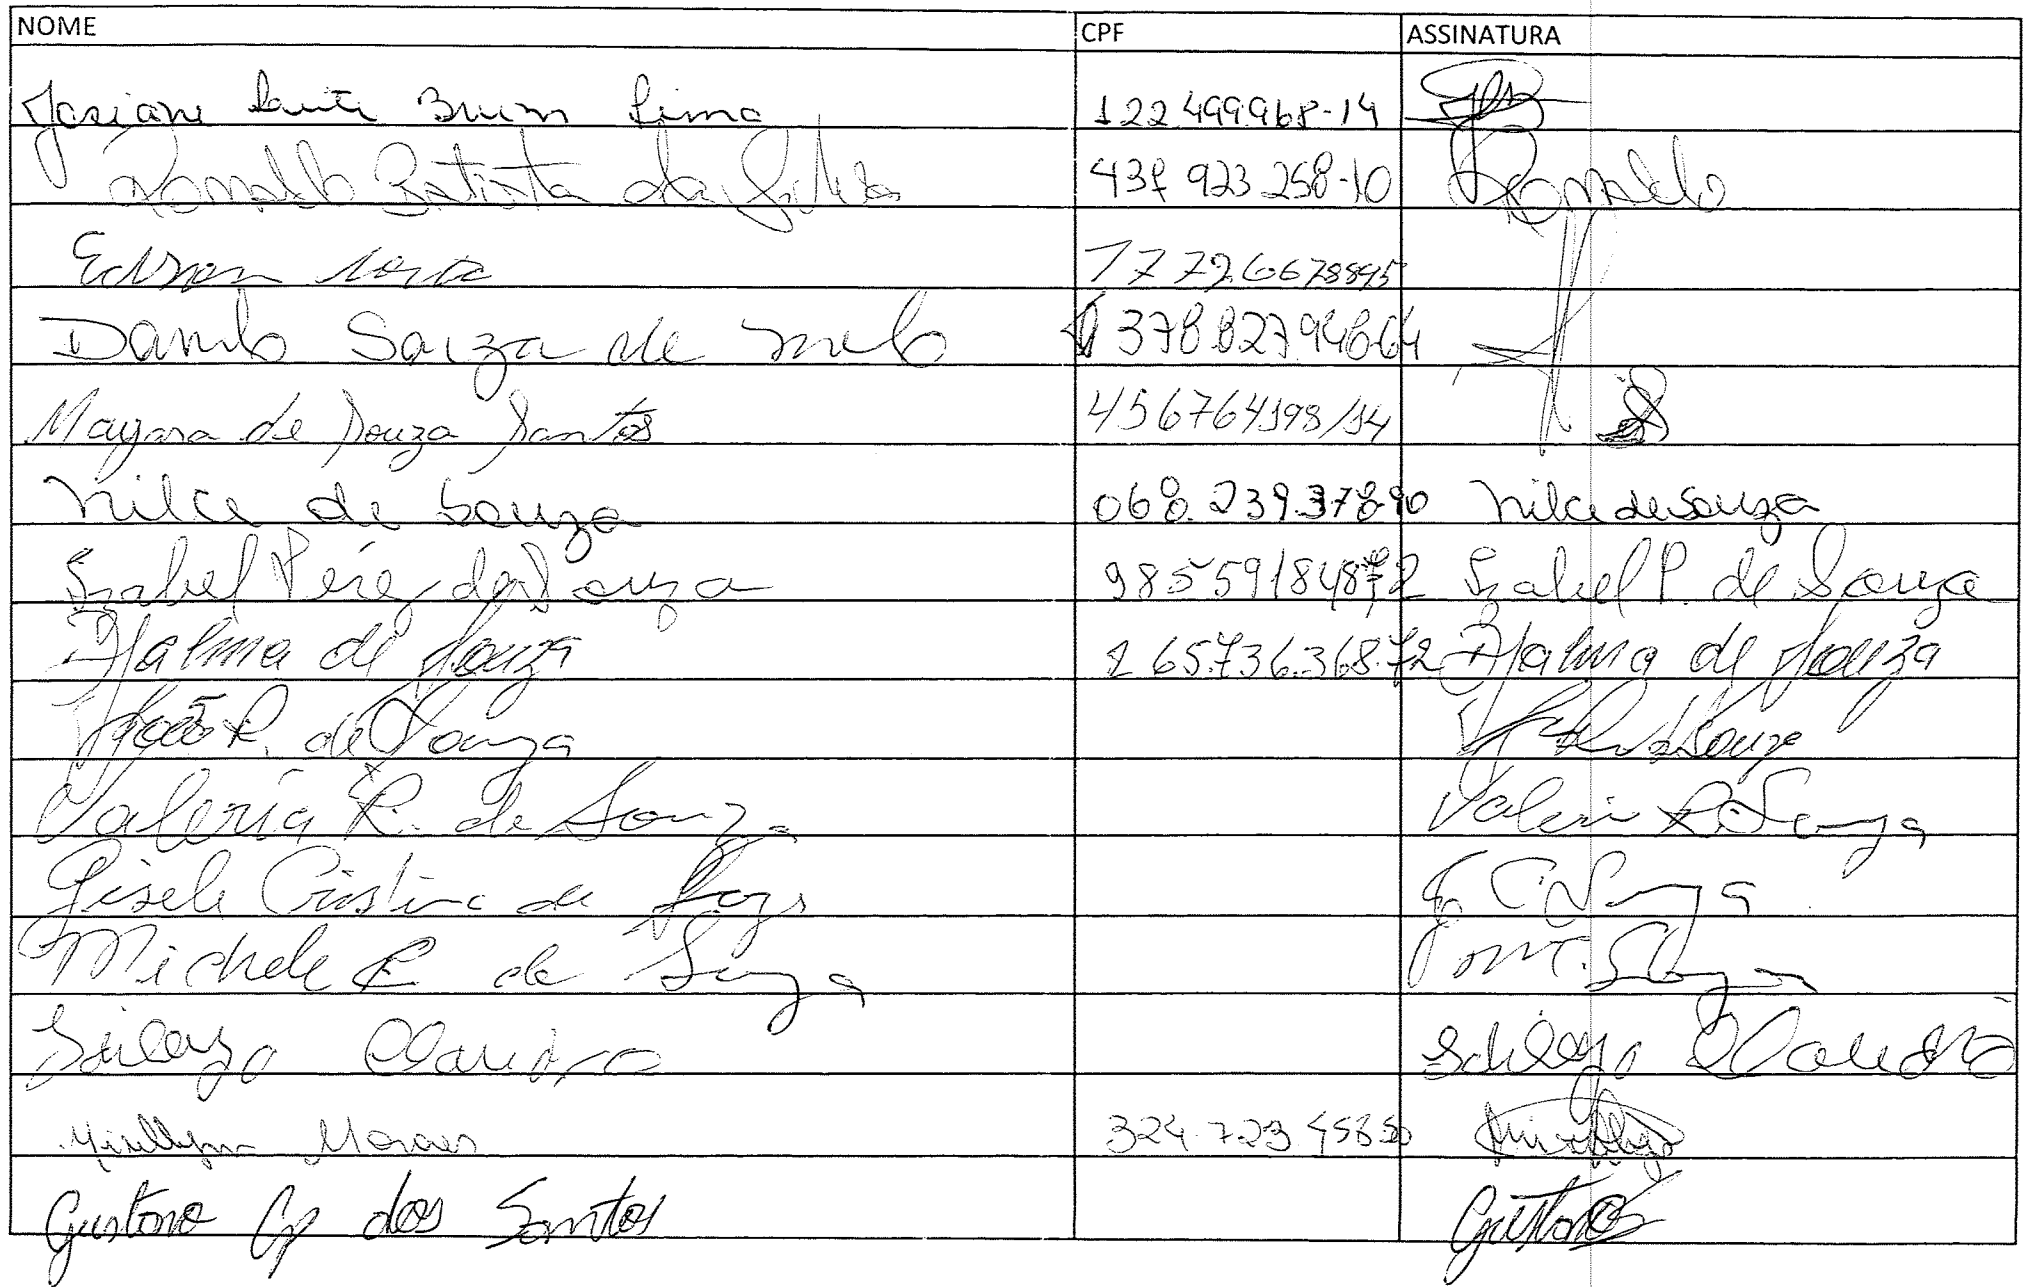 NOME CPF ASSINATURA
Josiane Leite Brum Lima 122 499968-14
Ronaldo Batista da Silva 438 923 258-10 Ronaldo
Edson 17726678895
Danilo Souza de Melo 378.827948-64
Mayara de Souza Santos 456764198/14
Nilce de Souza 068.239.378-90 Nilce de Souza
Izabel Perez de Souza 985591848 72 Izabel P. de Souza
Djalma de Souza 265.736.368.72 Djalma de Souza
João R. de Souza Souza
Valeria R. de Souza Valeri R. Souza
Gisele Cristina de G. C. Souza
Michele C. de Souza
Claudia
Moraes 324.723 458 50
Gustavo dos Santos Gustavo